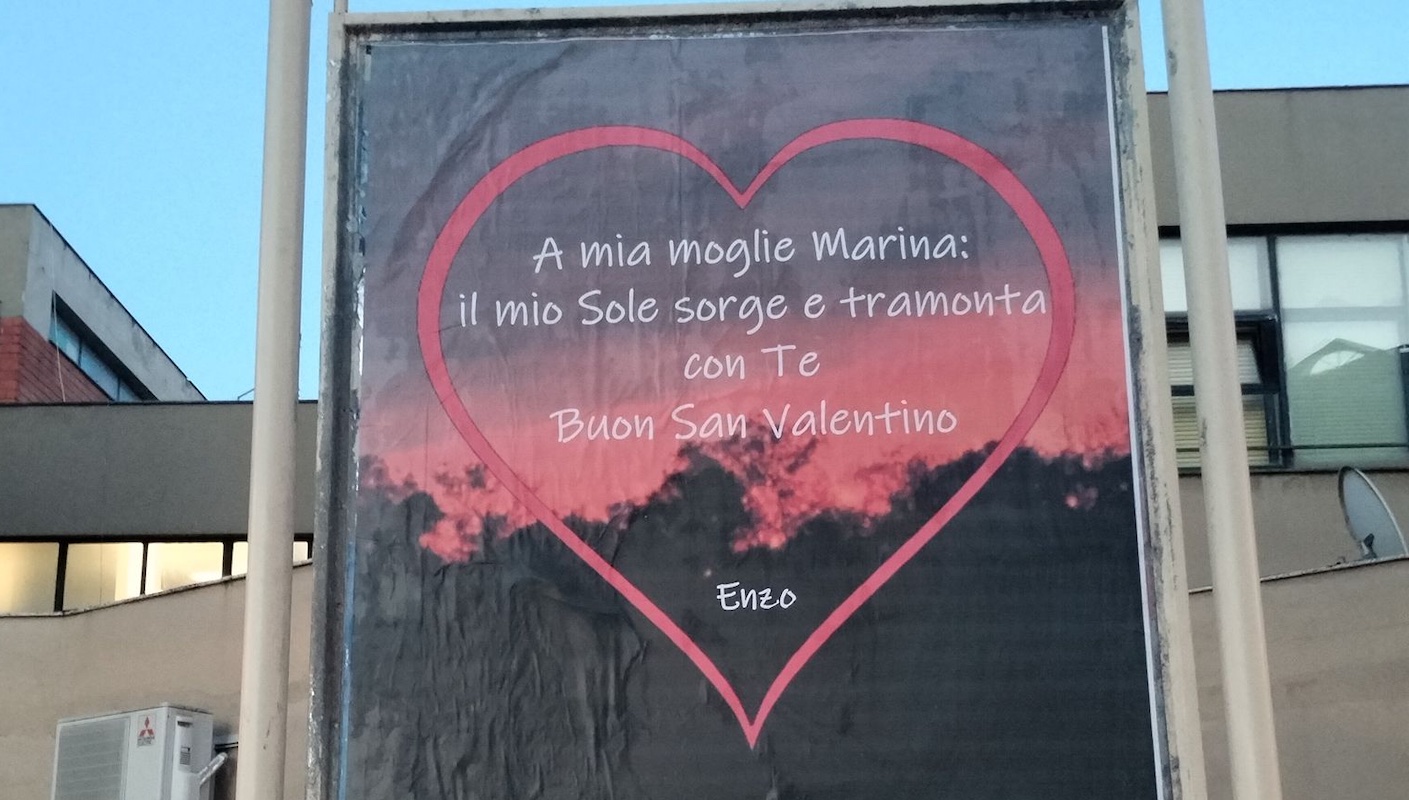 A mia moglie Marina:
il mio Sole sorge e tramonta
con Te
Buon San Valentino
Enzo